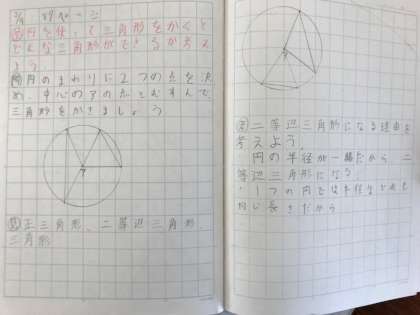 円を使って三角形をかくと
どんな三角形ができるか考え
よう。
円のまわりに2つの点を決
め、中心のアの点とむすんで
三角形をかきましょう
ア
正三角形、二等辺三角形、
三角形
ア
二等辺三角形になる理由を
考えよう。
円の半径が一緒だから、二
等辺三角形になる
1つの円では半径は全て
同じ長さだから